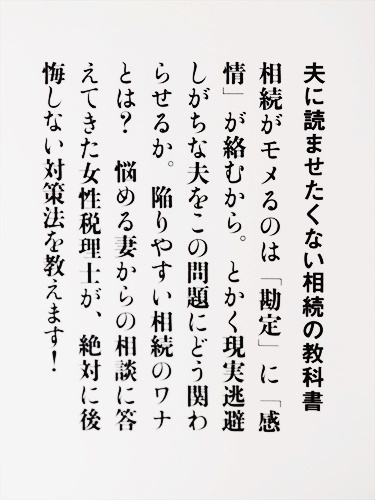 夫に読ませたくない相続の教科書
相続がモメるのは「勘定」に「感
情」が絡むから。とかく現実逃避
しがちな夫をこの問題にどう関わ
らせるか。陥りやすい相続のワナ
とは？　悩める妻からの相談に答
えてきた女性税理士が、絶対に後
悔しない対策法を教えます！